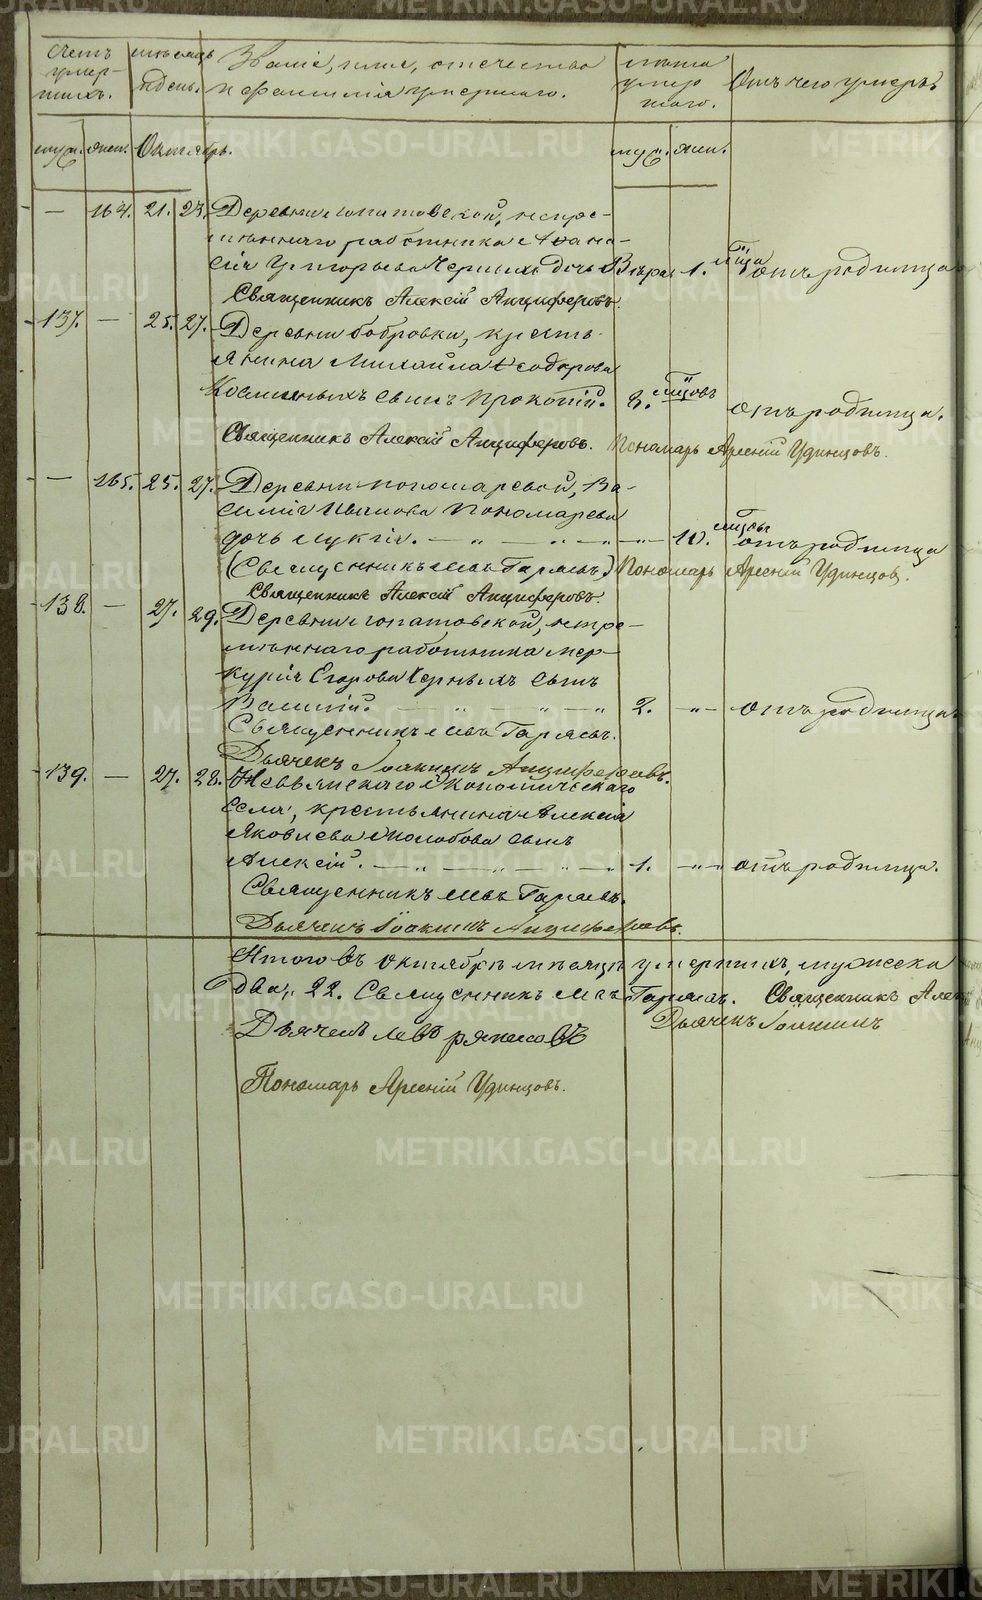 Счетъ умер- шихъ. мѣсяцъ и день. Званіе, имя, отечество и фамилія умершаго. лѣта умер- шаго. Отъ чего умеръ
муж. жен. Октябрь. муж. жен.
— 164. 21. 23. Деревни Лопатовской, непре-
мѣннаго работника Аѳана-
сія Григорьева Черныхъ дочь Вѣра 1. мѣсяца отъ родимца
Священникъ Алексій Анциферовъ.
137. — 25. 27. Деревни Бобровки, кресть-
янина Михайла Ѳеодорова
сынъ Прокопій. 8. мѣсяцовъ отъ родимца.
Священникъ Алексій Анциферовъ. Пономарь Арсеній Удинцовъ.
— 165. 25. 27. Деревни Пономаревой, Ва-
силія Иванова Пономарева
дочь Лукія. — „ — „ — „ — 10. мѣсяцы отъ родимца
(Священникъ Левъ Гаряевъ.) Пономарь Арсеній Удинцовъ.
Священникъ Алексій Анциферовъ.
138. — 27. 29. Деревни Лопатовской, непре-
мѣннаго работника Мер-
курія Егорова Черныхъ сынъ
Василій. — „ — „ — „ 2. — „ — отъ родимца
Священникъ Левъ Гаряевъ.
Дьячекъ Іоакимъ Анциферовъ.
139. — 27. 28. Невьянскаго Экономическаго
села, крестьянина Алексія
Яковлева Молобова сынъ
Алексій. — „ — „ — „ — 1. — „ — отъ родимца.
Священникъ Левъ Гаряевъ.
Дьячекъ Іоакимъ Анциферовъ.
Итого въ Октябрѣ мѣсяцѣ умершихъ, мужеска
два, 22. Священникъ Левъ Гаряевъ. Священникъ Алек
Дьячекъ Іоакимъ
Дьячекъ Левъ Ряпасовъ
Пономарь Арсеній Удинцовъ.
METRIKI.GASO-URAL.RU